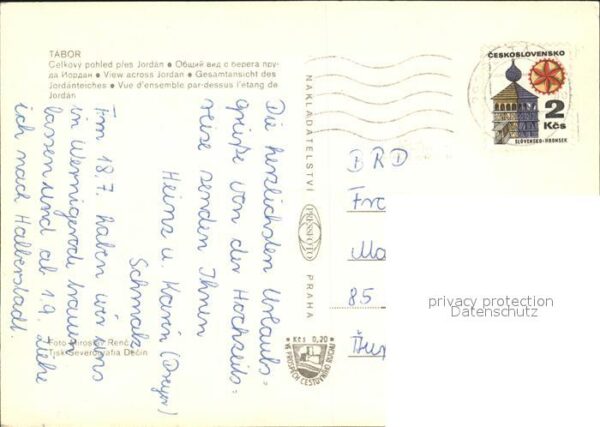 TÁBOR
Celkový pohled přes Jordán ● Общий вид с берега пру-
да Иордан ● View across Jordan ● Gesamtansicht des
Jordanteiches ● Vue d'ensemble par-dessus l'étang de
Jordán
Die herzlichsten Urlaubs-
grüße von der Hochzeits-
reise senden Ihnen
Heinz u. Karin (Dreyer)
Schmalz
Am 18.7. haben wir uns
in Wernigerode trauen
lassen und ab 1.9. ziehe
ich nach Halberstadt.
Foto Miroslav Renč
Tisk Severografia Děčín
NAKLADATELSTVÍ
PRESSFOTO
PRAHA
Kčs 0,20
VE PROSPĚCH CESTOVNÍHO RUCHU
ČESKOSLOVENSKO
2
Kčs
SLOVENSKO-HRONSEK
BRD
Fra
Ma
85
privacy protection
Datenschutz